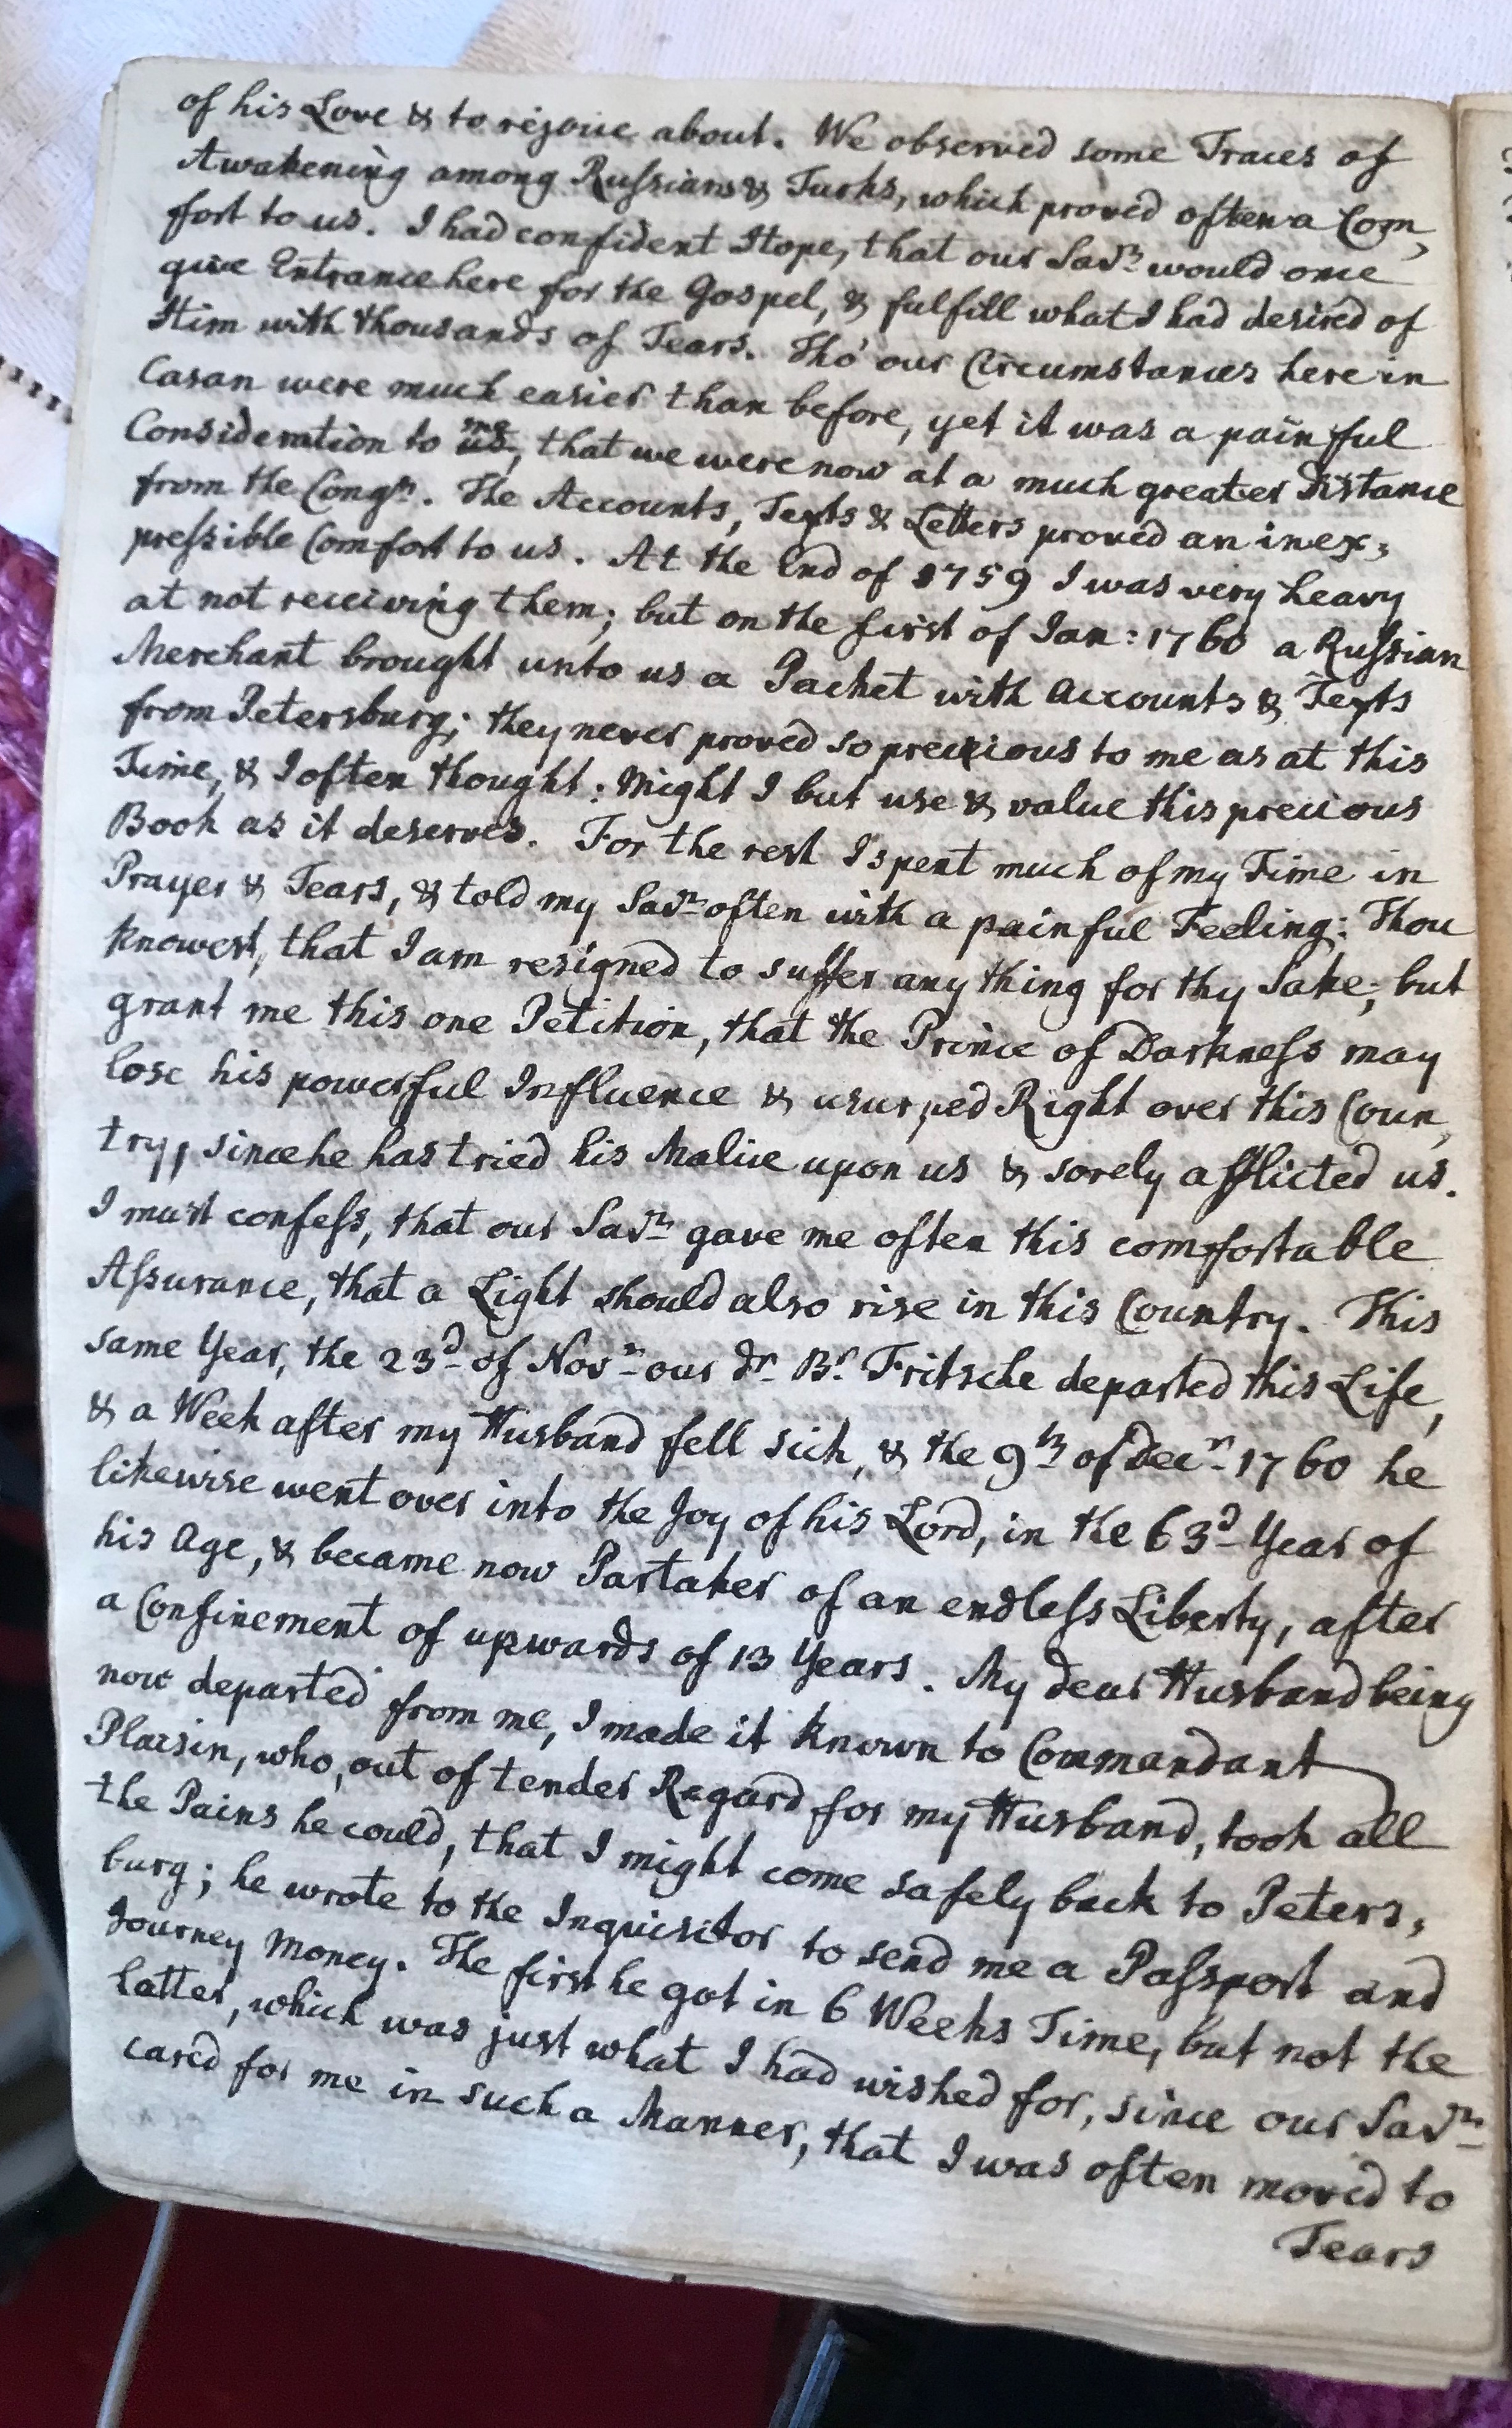 of his Love & to rejoice about. We observed some Traces of
Awakening among Russians & Turks, which proved often a Com,
fort to us. I had confident Hope, that our Savr. would once
give Entrance here for the Gospel, & fulfill what I had desired of
Him with thousands of Tears. Tho' our Circumstances here in
Casan were much easier than before, yet it was a painful
Consideration to us me, that we were now at a much greater Distance
from the Congn. The Accounts, Texts & Letters proved an inex,
pressible Comfort to us. At the End of 1759 I was very heavy
at not receiving them; but on the first of Jan: 1760 a Russian
Merchant brought unto us a Packet with Accounts & Texts
from Petersburg; they never proved so precious to me as at this
Time, & I often thought: Might I but use & value this precious
Book as it deserves. For the rest I spent much of my Time in
Prayer & Tears, & told my Savr. often with a painful Feeling: Thou
knowest, that I am resigned to suffer any thing for thy Sake; but
grant me this one Petition, that the Prince of Darkness may
lose his powerful Influence & usurped Right over this Coun,
try, since he has tried his Malice upon us & sorely afflicted us.
I must confess, that our Savr. gave me often this comfortable
Assurance, that a Light should also rise in this Country. This
same Year, the 23d of Novr. our dr. Br. Fritsche departed this Life,
& a Week after my Husband fell sick, & the 9th of Decr. 1760 he
likewise went over into the Joy of his Lord, in the 63d Year of
his Age, & became now Partaker of an endless Liberty, after
a Confinement of upwards of 13 Years. My dear Husband being
now departed from me, I made it known to Commandant
Plassin, who, out of tender Regard for my Husband, took all
the Pains he could, that I might come safely back to Peters,
burg; he wrote to the Inquisitor to send me a Passport and
Journey Money. The first he got in 6 Weeks Time, but not the
latter, which was just what I had wished for, since our Savr.
cared for me in such a Manner, that I was often moved to
Tears